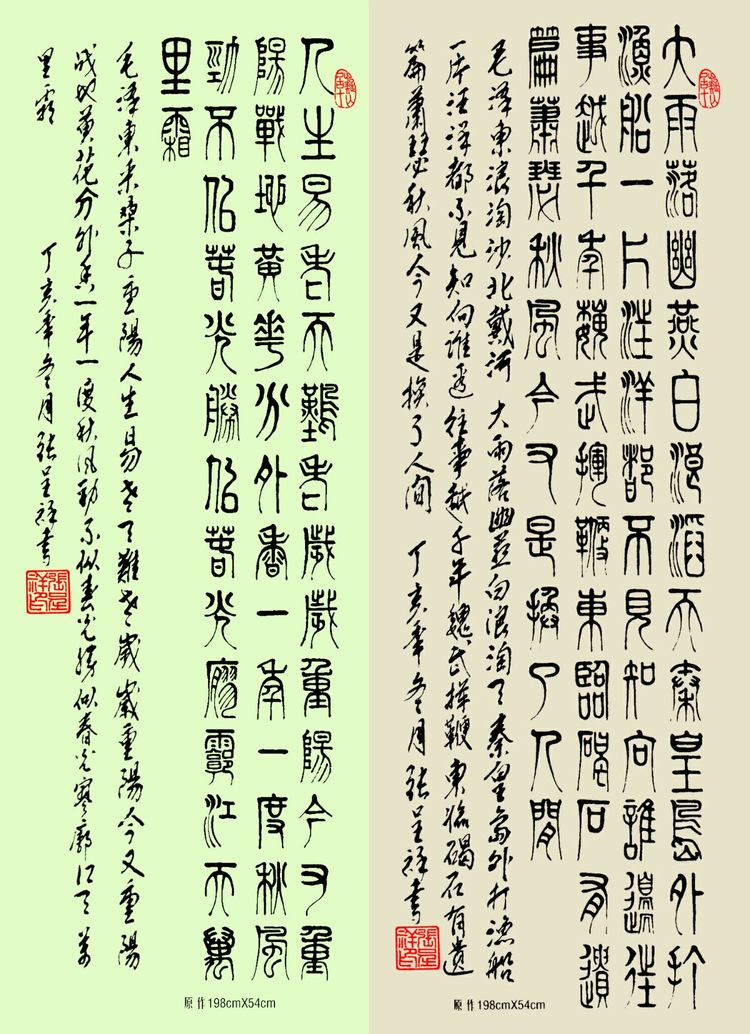 大雨落幽燕白浪滔天秦皇島外打
漁船一片汪洋都不見知向誰邊往
事越千年魏武揮鞭東臨碣石有遺
篇蕭瑟秋風今又是換了人間
毛澤東浪淘沙北戴河 大雨落幽燕白浪淘天秦皇島外打漁船
一片汪洋都不見知向誰邊往事越千年魏武揮鞭東臨碣石有遺
篇蕭瑟秋風今又是換了人間 丁亥年冬月張呈祥書
張呈祥印
原作198cmX54cm
人生易老天難老歲歲重陽今又重
陽戰地黃花分外香一年一度秋風
勁不似春光勝似春光寥廓江天萬
里霜
毛澤東采桑子重陽人生易老天難老歲歲重陽今又重陽
戰地黃花分外香一年一度秋風勁不似春光勝似春光寥廓江天萬
里霜 丁亥年冬月張呈祥書
張呈祥印
原作198cmX54cm